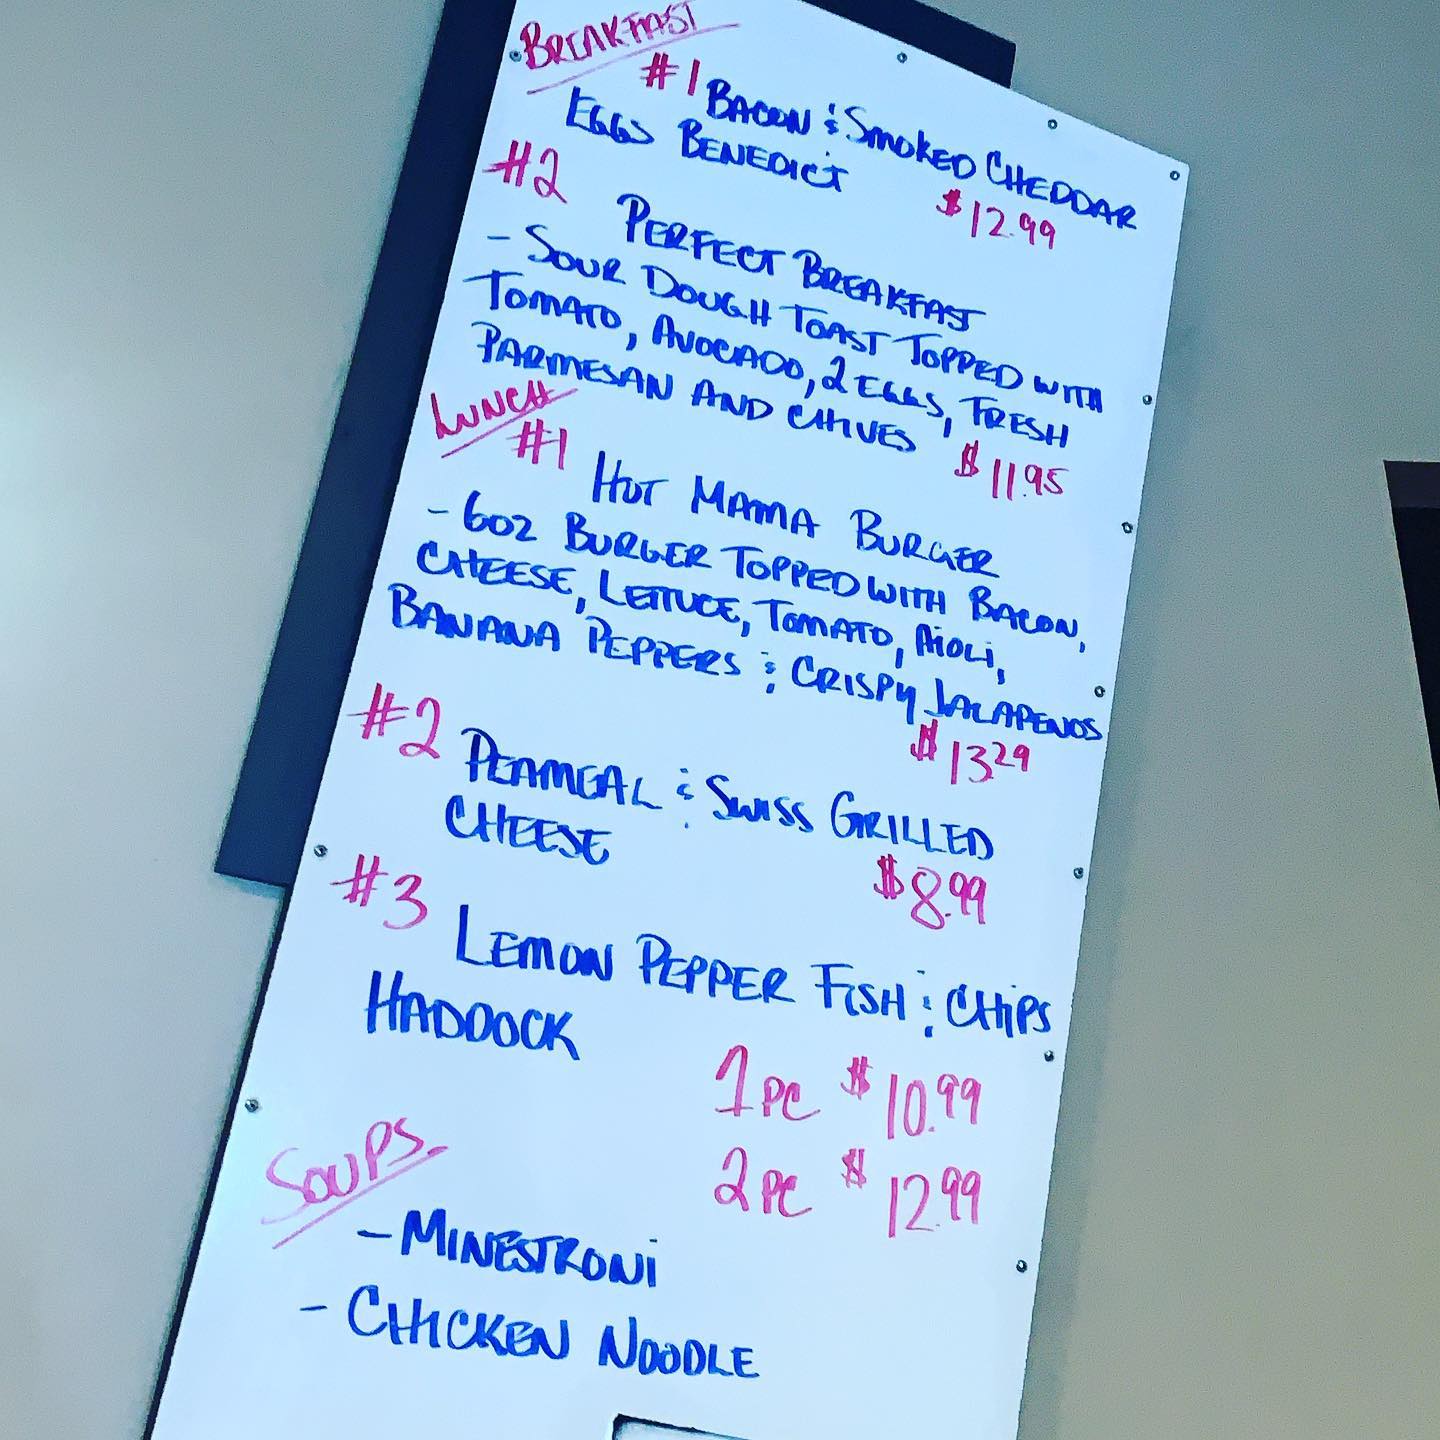 BREAKFAST
#1 BACON & SMOKED CHEDDAR
EGGS BENEDICT $12.99
#2 PERFECT BREAKFAST
- SOUR DOUGH TOAST TOPPED WITH
TOMATO, AVOCADO, 2 EGGS, FRESH
PARMESAN AND CHIVES $11.95
LUNCH
#1 HOT MAMA BURGER
- 6OZ BURGER TOPPED WITH BACON,
CHEESE, LETTUCE, TOMATO, AIOLI,
BANANA PEPPERS & CRISPY JALAPENOS
$13.29
#2 PEAMEAL & SWISS GRILLED
CHEESE $8.99
#3 LEMON PEPPER FISH & CHIPS
HADDOCK
1 PC $10.99
2 PC $12.99
SOUPS
- MINESTRONI
- CHICKEN NOODLE